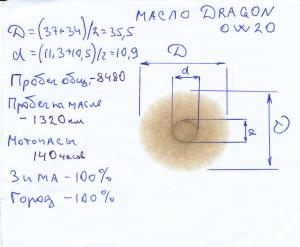 МАСЛО DRAGON
0W20
D=(37+34)/2=35,5
d=(11,3+10,5)/2=10,9
Пробег общ.-8480
Пробег на масле
-1320 км
Моточасы
140 часов
Зима-100%
Город-100%
D
d
d
D